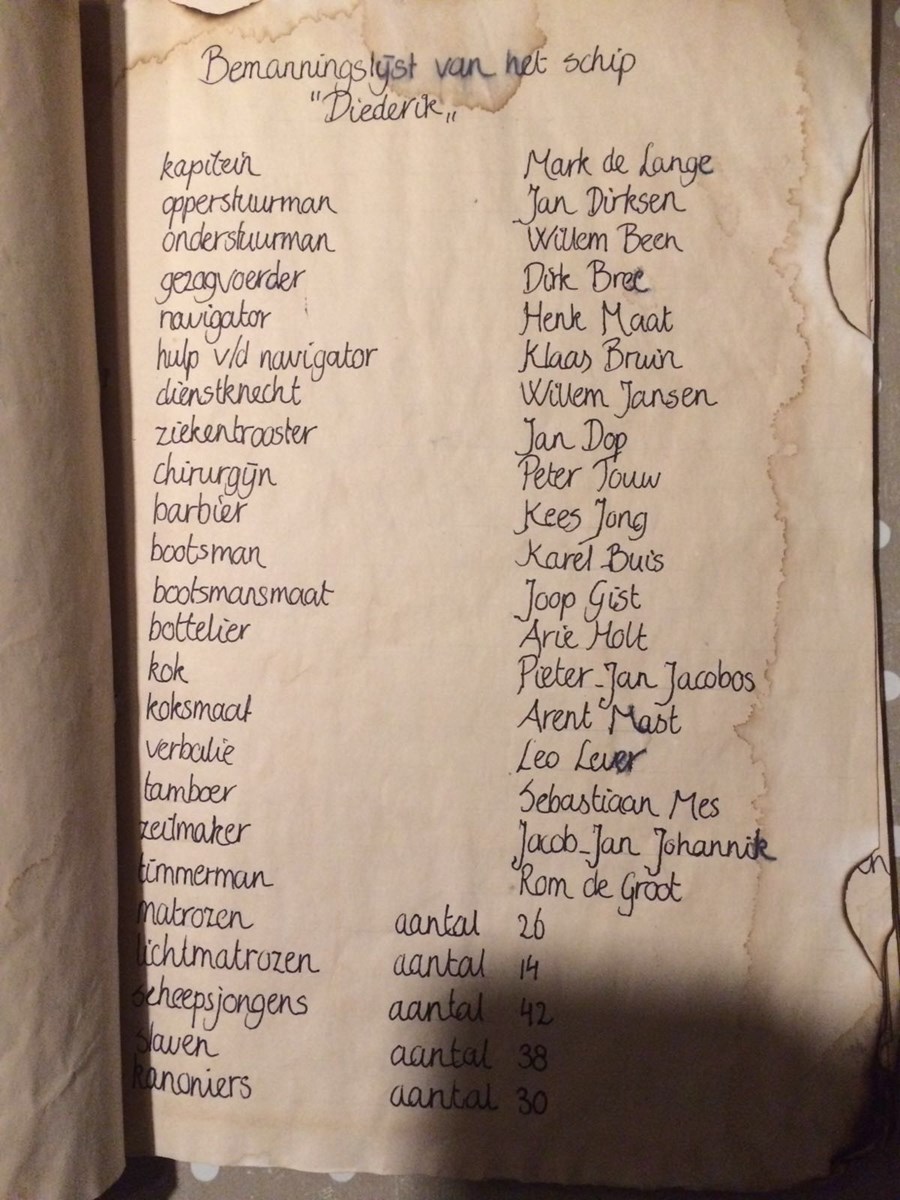 Bemanningslijst van het schip
"Diederik„
kapitein Mark de Lange
opperstuurman Jan Dirksen
onderstuurman Willem Been
gezagvoerder Dirk Bree
navigator Henk Maat
hulp v/d navigator Klaas Bruin
dienstknecht Willem Jansen
ziekentrooster Jan Dop
chirurgijn Peter Touw
barbier Kees Jong
bootsman Karel Buis
bootsmansmaat Joop Gist
bottelier Arie Holt
kok Pieter-Jan Jacobos
koksmaat Arent Mast
verbalie Leo Lever
tamboer Sebastiaan Mes
zeilmaker Jacob-Jan Johannik
timmerman Rom de Groot
matrozen aantal 26
lichtmatrozen aantal 14
scheepsjongens aantal 42
slaven aantal 38
kanoniers aantal 30